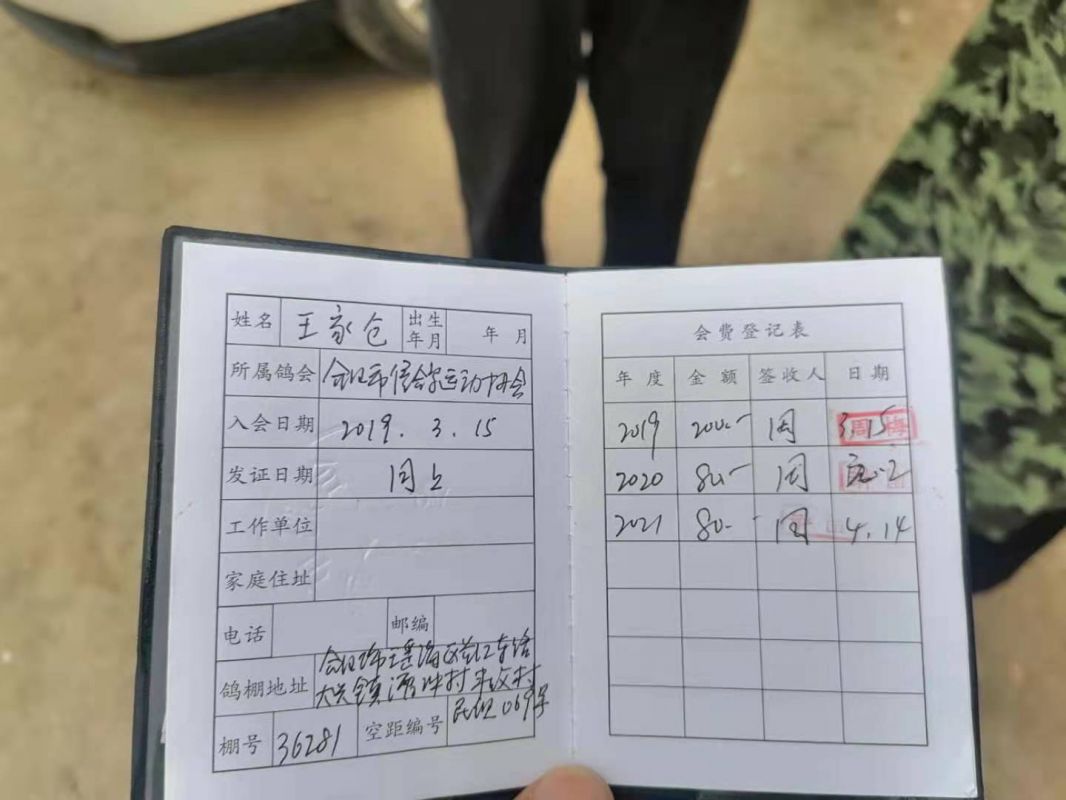 姓名 王家仓 出生年月 年 月
所属鸽会 合肥市信鸽运动协会
入会日期 2019.3.15
发证日期 同上
工作单位
家庭住址
电话 邮编
鸽棚地址 合肥市瑶海区长江东路
大兴镇 村 村
民组069号
棚号 36281 空距编号
会费登记表
年度 金额 签收人 日期
2019 200.- 周 3.15
2020 80.- 周
2021 80.- 周 4.14